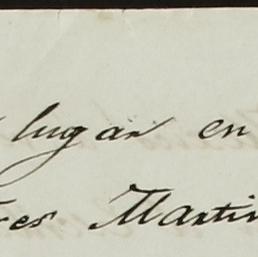 lugar en
res Martin